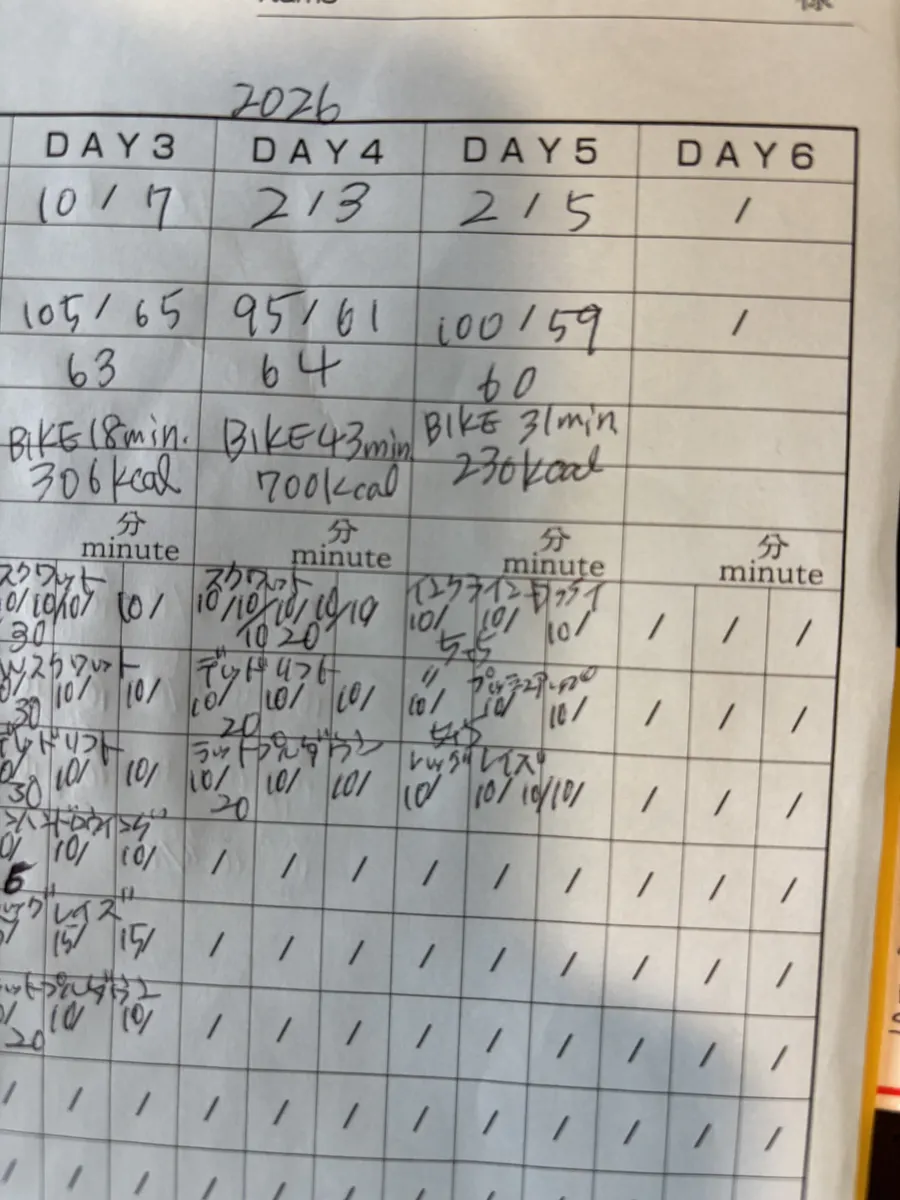 様
2026
DAY3 DAY4 DAY5 DAY6
10/7 2/3 2/5 /
105/65 95/61 100/59 /
63 64 60
BIKE 18min. BIKE 43min BIKE 31min
306kcal 700kcal 230kcal
分 分 分 分
minute minute minute minute
スクワット スクワット インクラインプッシュ
10/10/ 10/ 10/10/10/10/10 10/ 10/ 10/ / / /
30 10 20 5.5
スクワット デッドリフト 〃
10/ 10/ 10/ 10/ 10/ 10/ 10/ 10/ / / /
30 20
デッドリフト ラットプルダウン レッグレイズ
10/ 10/ 10/ 10/ 10/ 10/ 10/ 10/10/ / / /
30 20
10/ 10/ / / / / / / / / /
レイズ
15/ 15/ / / / / / / / / /
ットプルダウン
10/ 10/ / / / / / / / / /
20
/ / / / / / / / / / / /
/ / / / / / / / / / / /